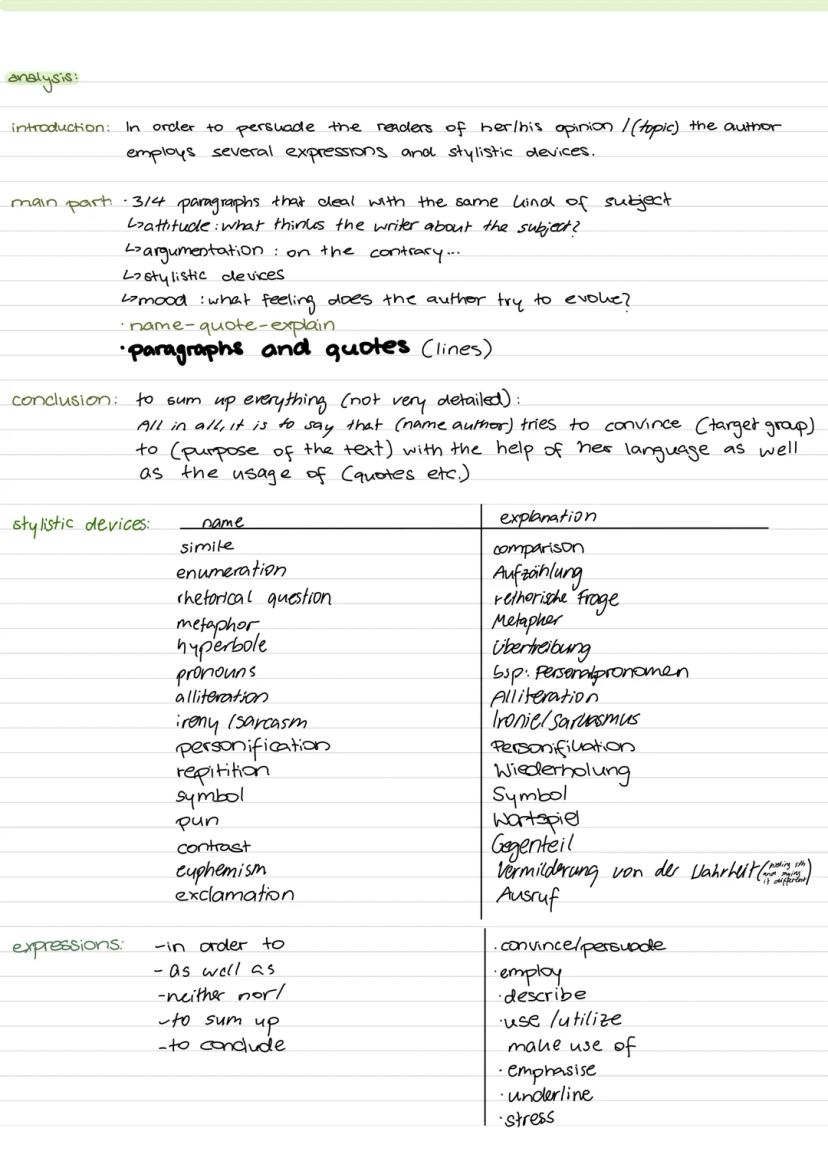 analysis:
introduction: In order to persuade the readers of her/his opinion /(topic) the author
employs several expressions and stylistic devices.
main part · 3/4 paragraphs that deal with the same kind of subject
↳attitude: what thinks the writer about the subject?
↳argumentation : on the contrary...
↳stylistic devices
↳mood : what feeling does the author try to evoke?
· name-quote-explain
· paragraphs and quotes (lines)
conclusion: to sum up everything (not very detailed):
All in all, it is to say that (name author) tries to convince (target group)
to (purpose of the text) with the help of her language as well
as the usage of (quotes etc.)
stylistic devices: name explanation
simile comparison
enumeration Aufzählung
rhetorical question rethorische Frage
metaphor Metapher
hyperbole Übertreibung
pronouns bsp: Personalpronomen
alliteration Alliteration
irony /sarcasm Ironie/Sarkasmus
personification Personifikation
repitition Wiederholung
symbol Symbol
pun Wortspiel
contrast Gegenteil
euphemism Vermilderung von der Wahrheit ( sth and saying it different)
exclamation Ausruf
expressions: -in order to · convince/persuade
- as well as · employ
-neither nor/ · describe
-to sum up · use /utilize
-to conclude make use of
· emphasise
· underline
· stress